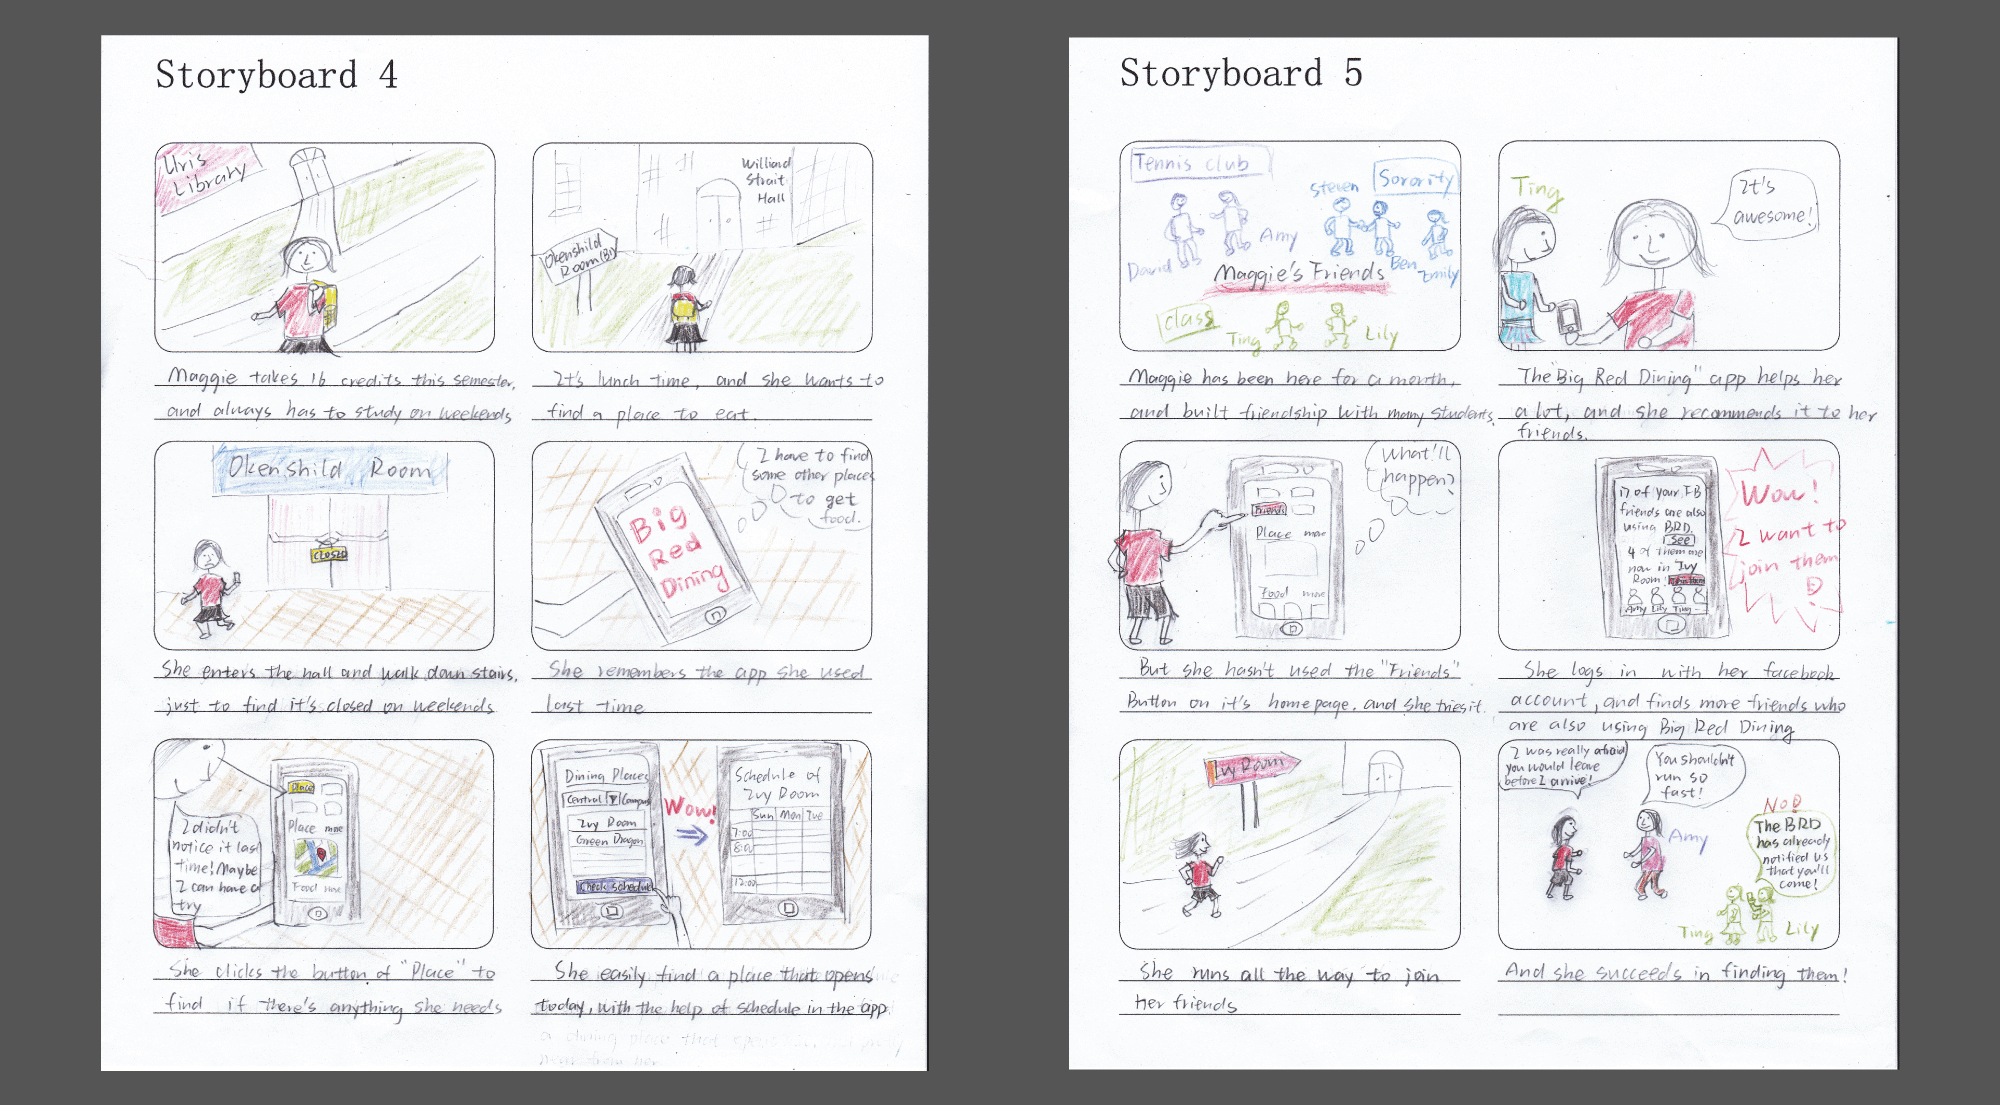 Storyboard 4
Uris
Library
Maggie takes 16 credits this semester,
and always has to study on weekends
Williard
Strait
Hall
Okenshild
Room (B1)
It's lunch time, and she wants to
find a place to eat.
Okenshild Room
CLOSED
She enters the hall and walk down stairs,
just to find it's closed on weekends
Big
Red
Dining
I have to find
some other places
to get
food.
She remembers the app she used
last time
Place
Place more
Food more
I didn't
notice it last
time! Maybe
I can have a
try
She clicks the button of "Place" to
find if there's anything she needs
Dining Places
Central Campus
Ivy Room
Green Dragon
Check schedule
Wow!
Schedule of
Ivy Room
Sun Mon Tue
7:00
8:00
12:00
She easily find a place that opens
today, with the help of schedule in the app
Storyboard 5
Tennis club
David
Amy
Steven
Sorority
Ben
Emily
Maggie's Friends
class
Ting
Lily
Maggie has been here for a month,
and built friendship with many students.
Ting
It's
awesome!
The "Big Red Dining" app helps her
a lot, and she recommends it to her
friends.
Friends
Place more
Food more
What'll
happen?
But she hasn't used the "Friends"
Button on it's homepage, and she tries it.
17 of your FB
friends are also
using BRD.
See
4 of them are
now in Ivy
Room!
Amy Lily Ting
Wow!
I want to
join them
She logs in with her facebook
account, and finds more friends who
are also using Big Red Dining
Ivy Room
She runs all the way to join
her friends
I was really afraid
you would leave
before I arrive!
You shouldn't
run so
fast!
Amy
No!
The BRD
has already
notified us
that you'll
come!
Ting
Lily
And she succeeds in finding them!